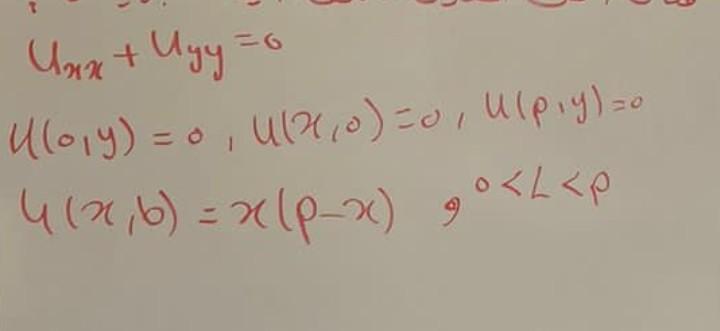 Uxx + Uyy = 0
U(0,y) = 0 , U(x,0) = 0 , U(p,y) = 0
U(x,b) = x(p-x) , 0<L<p